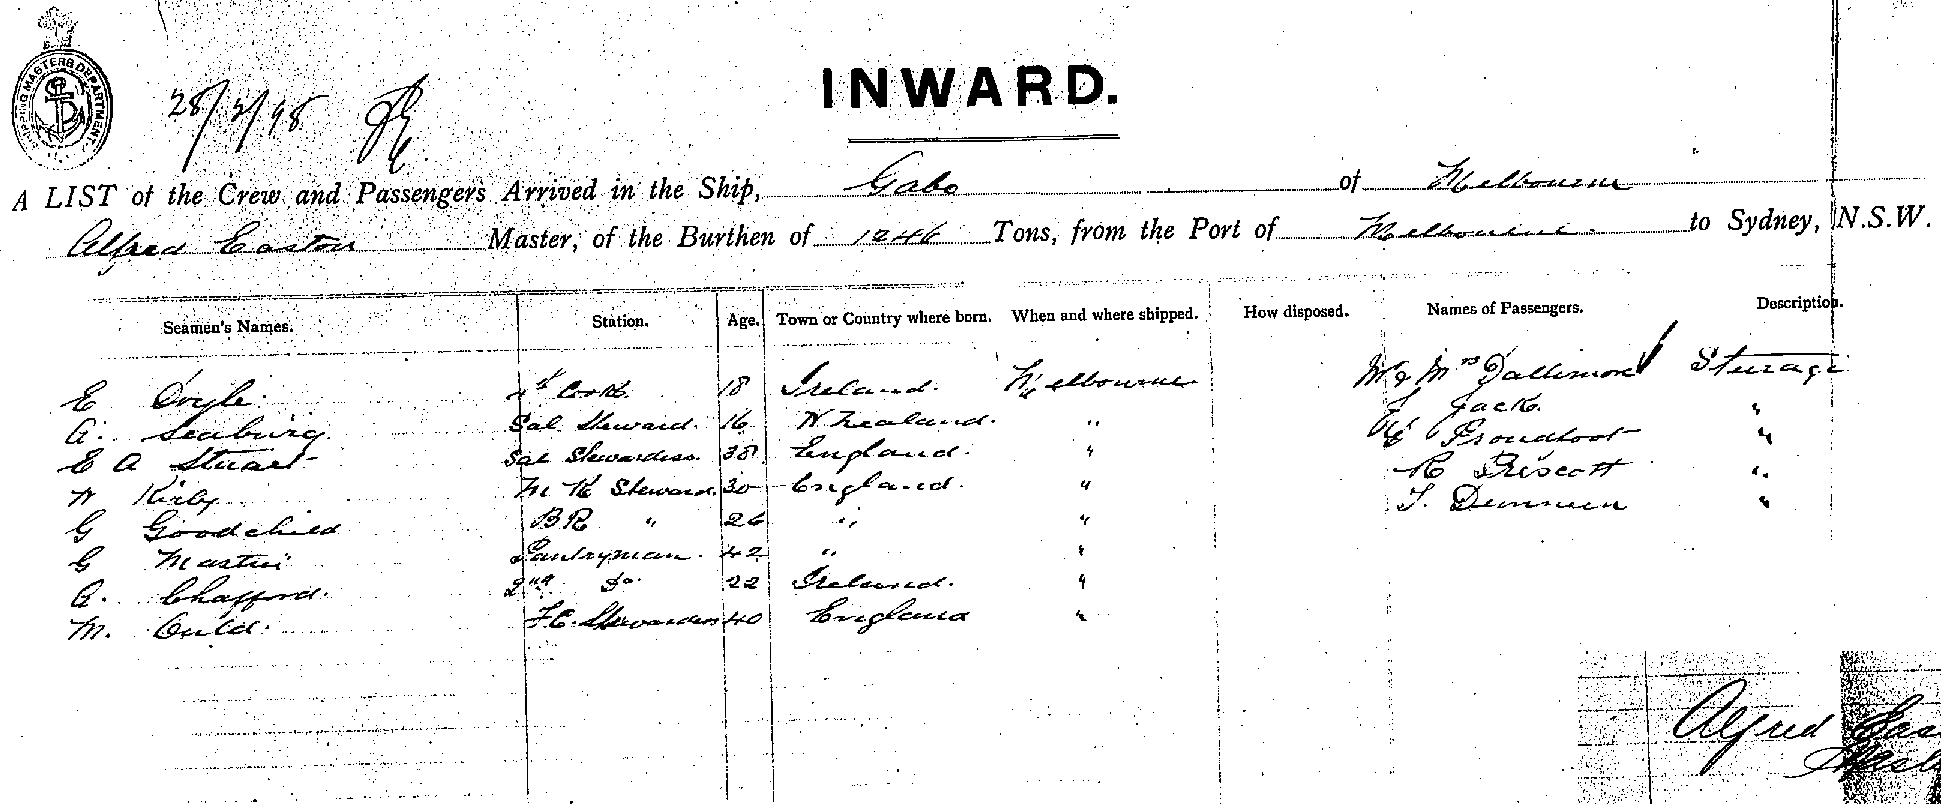 SHIPPING MASTERS DEPARTMENT.
INWARD.
A LIST of the Crew and Passengers Arrived in the Ship, Gabo of Melbourne
Alfred Easton Master, of the Burthen of 1246 Tons, from the Port of Melbourne to Sydney, N.S.W.
Seamen's Names. Station. Age. Town or Country where born. When and where shipped. How disposed. Names of Passengers. Description.
E Doyle Cook 18 Ireland Melbourne Mr & Mrs Dallimore Steerage
A. Seaburg Sal Steward 16 N Zealand " J Jack "
E A Stuart Sal Stewardess 38 England " Proudfoot "
W Kirby Steward 30 England " R Priscott "
G Goodchild BR " 26 " " T. "
G Martin Pantryman 42 " "
A. Chafford 2nd Do 22 Ireland "
M. Auld F.C. Stewardess 40 England "
Alfred Eas